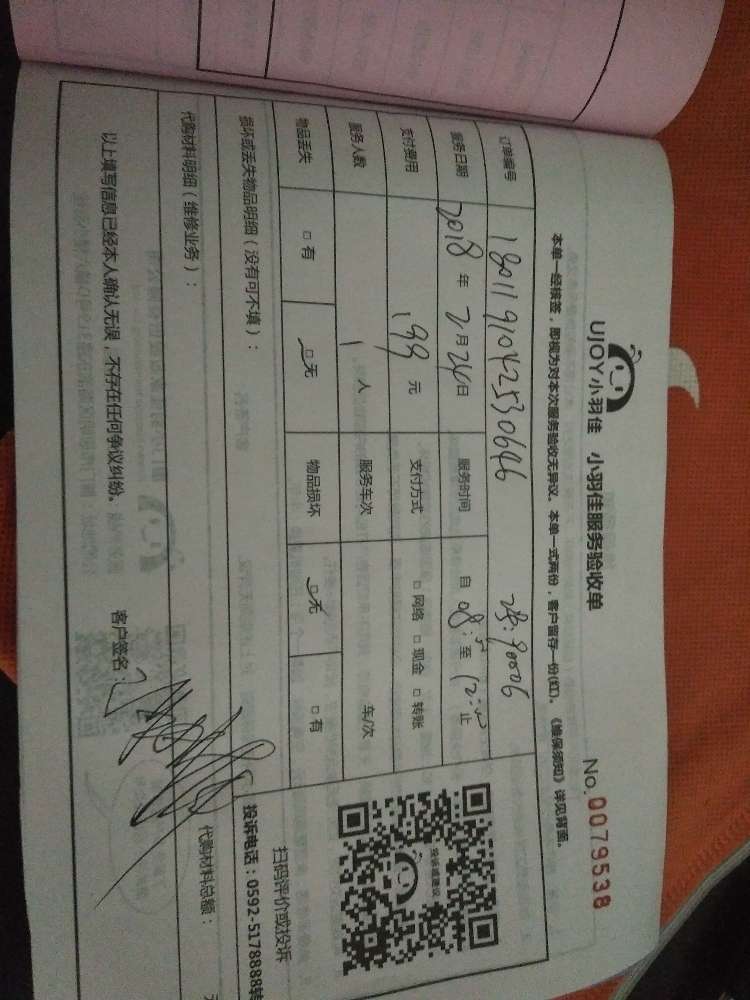 UJOY小羽佳 小羽佳服务验收单
No. 0079538
本单一经接签，即视为对本次服务验收无异议。本单一式两份，客户留存一份(红)。《维保须知》详见背面。
订单编号 1801191042530646
服务日期 2018 年 2 月 24 日 服务时间 自 08: 至 12: 止
支付费用 199 元 支付方式 □ 网络 □ 现金 □ 转账
服务人数 1 人 服务车次 车/次
物品丢失 □ 有 □ 无 物品损坏 □ 无 □ 有
损坏或丢失物品明细（没有可不填）：
投诉有建议
扫码评价或投诉
投诉电话：0592-5178888转
代购材料明细（维修业务）：
代购材料总额：
以上填写信息已经本人确认无误，不存在任何争议纠纷。 客户签名：